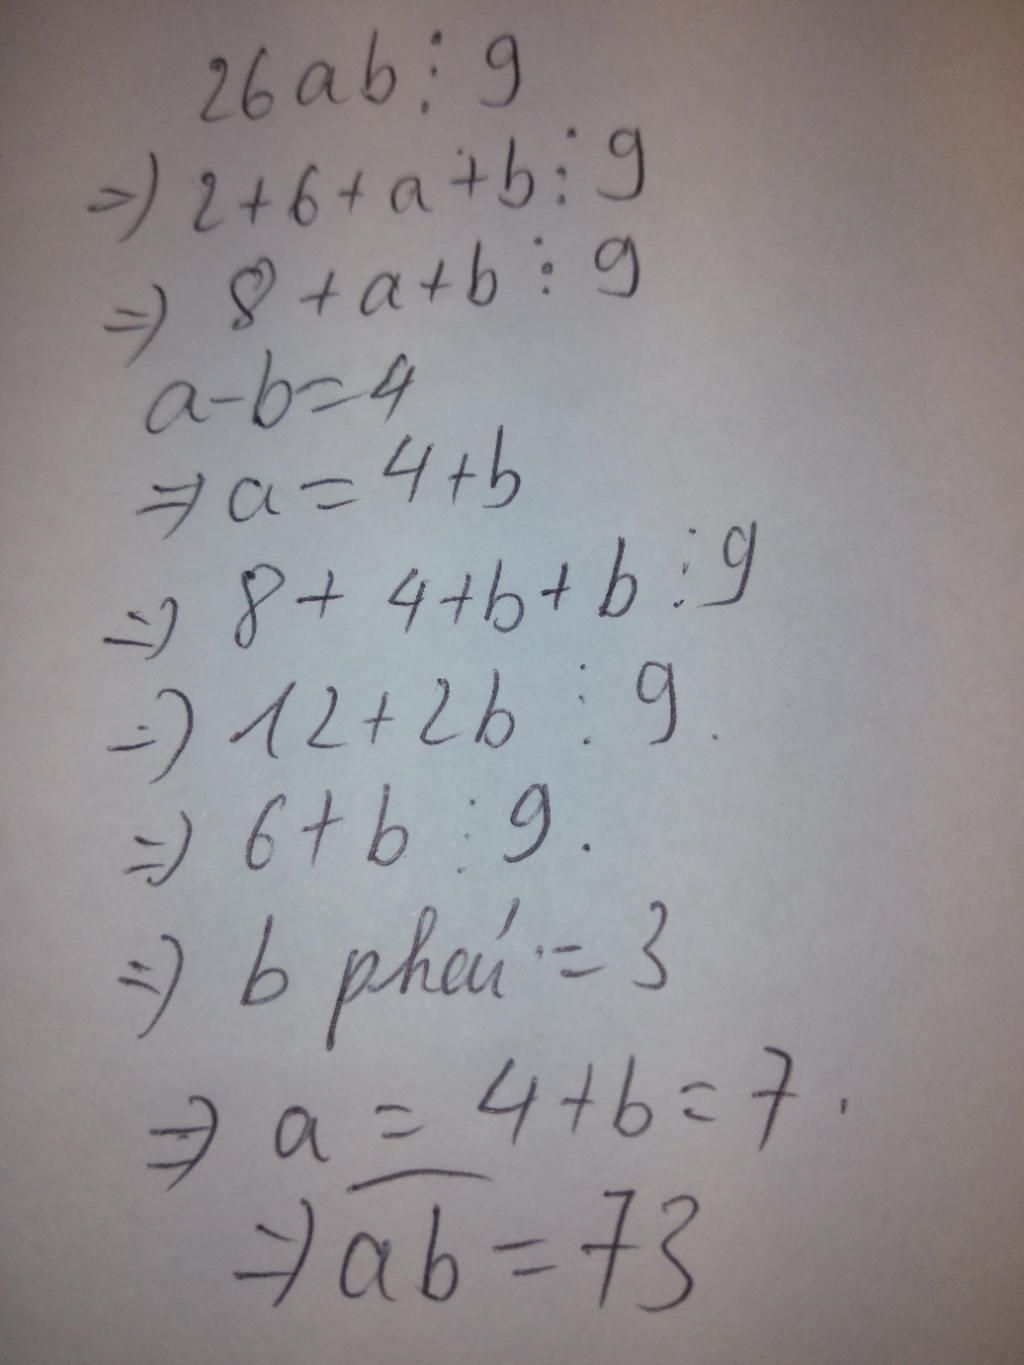 26ab ⋮ 9
=) 2+6+a+b ⋮ 9
=) 8+a+b ⋮ 9
a-b=4
=) a=4+b
=) 8+4+b+b ⋮ 9
=) 12+2b ⋮ 9.
=) 6+b ⋮ 9.
=) b phải = 3
=) a = 4+b = 7.
=) a̅b̅ = 73